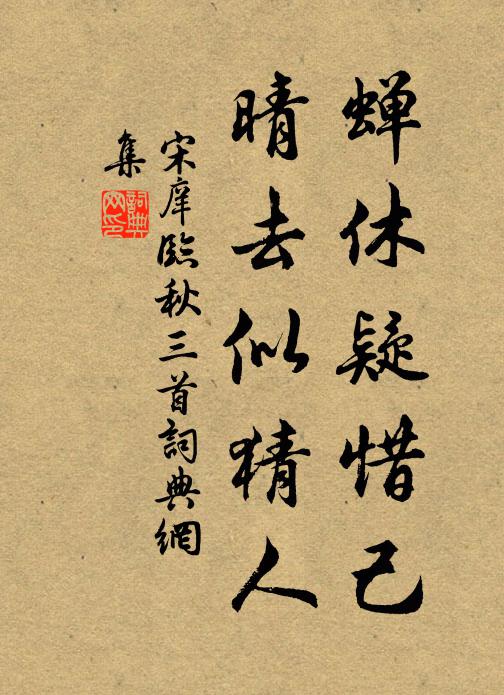 蝉休疑惜己
晴去似猜人
宋庠臨秋三首詞典網
集
詞典
网印